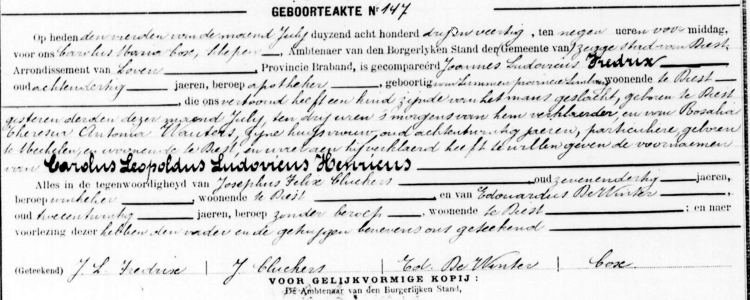 GEBOORTEAKTE Nr 147
Op heden den vierden van de maend July duyzend acht honderd dry en veertig, ten negen ueren voor middag,
voor ons Carolus Maria Cox, Schepen Ambtenaer van den Borgerlyken Stand der Gemeente van Zegge stad van Diest
Arrondissement van Loven Provincie Braband, is gecompareërd Joannes Ludovicus Fredrix
oud achtendertig jaeren, beroep apotheker, geboortig van Lummen provincie Limburg, woonende te Diest
, die ons vertoond heeft een kind zynde van het mans geslacht, geboren te Diest
gisteren derden dezer maend July, ten dry uren 's morgens van hem verklaerder en van Rosalia
Theresia Antonia Wauters, zyne huysvrouw, oud achtentwintig jaeren, particuliere geboren
te Mechelen, en woonende te Diest, en aen wie hy verklaerd heeft te willen geven de voornamen
van Carolus Leopoldus Ludovicus Henricus
Alles in de tegenwoordigheyd van Josephus Felix Cluckers oud zevenendertig jaeren,
beroep winkelier, woonende te Diest en van Edouardus De Winter
oud tweeentwintig jaeren, beroep zonder beroep, woonende te Diest ; en naer
voorlezing dezer hebben den vader en de getuygen benevens ons geteekend
(Geteekend) J. L. Fredrix | J Cluckers | Ed. De Winter | Cox
VOOR GELIJKVORMIGE KOPIJ :
De Ambtenaar van den Burgerlijken Stand,